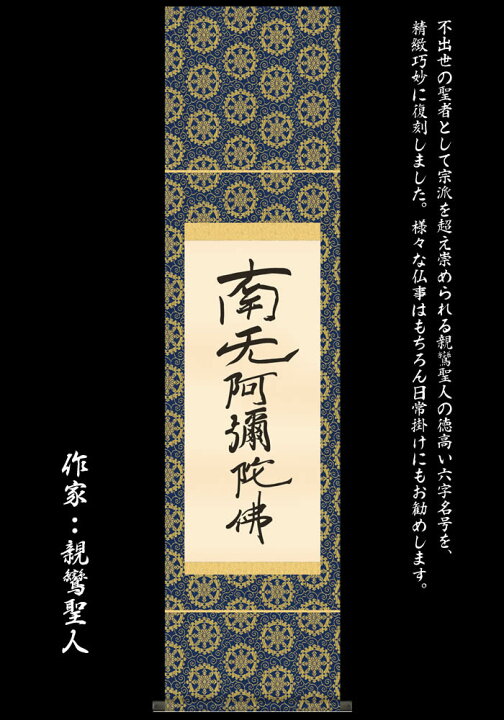 不出世の聖者として宗派を超え崇められる親鸞聖人の徳高い六字名号を、
精緻巧妙に復刻しました。様々な仏事はもちろん日常掛けにもお勧めします。
南无阿彌陀佛
作家：親鸞聖人